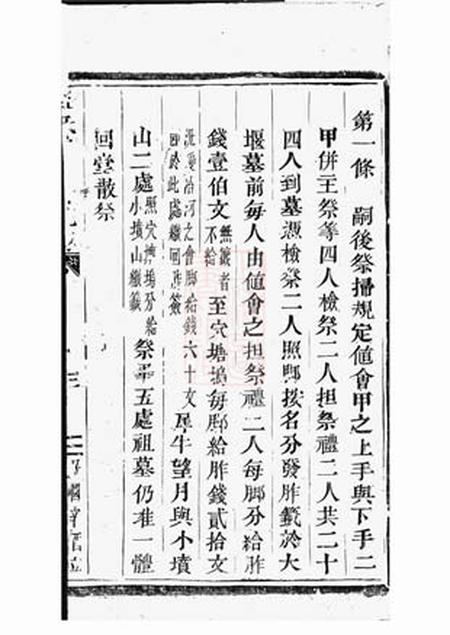 第一條　嗣後祭掃規定值會甲之上手與下手二
甲併主祭等四人檢祭二人担祭禮二人共二十
四人到墓憑檢祭二人照脚按名分發胙籤於大
堰墓前每人由值會之担祭禮二人每脚分給胙
錢壹伯文無籤者不給至穴塘塢每脚給胙錢貳拾文
之會脚給錢六十文
於此處繳回胙籤犀牛望月與小墳
山二處照穴塘塢分給小墳山繳籤祭畢五處祖墓仍准一體
回堂散祭
三